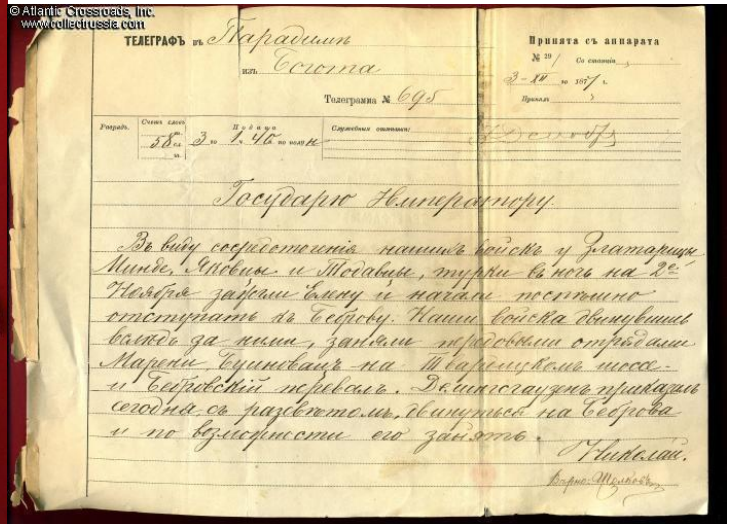 © Atlantic Crossroads, Inc.
www.collectrussia.com
ТЕЛЕГРАФЪ въ Парадимъ
изъ Богота
Телеграмма № 695
Принята съ аппарата
№ 29
Со станціи
3-XII го 1877 г.
Принялъ
Разрядъ.
Счетъ словъ
58
Подача
3 го 1 ч. 40 по полун
Служебныя отмѣтки:
Государю Императору.
Въ виду сосредоточенія нашихъ войскъ у Златарицы
Минде, Яковцы и Тодавцы, турки въ ночь на 2е
Ноября зажгли Елену и начали поспѣшно
отступать къ Беброву. Наши войска двинувшись
вслѣдъ за ними, заняли передовыми отрядами
Марени, Буиновцы на Твардицкомъ шоссе
и Бебровскій перевалъ. Деллингсгаузенъ приказалъ
сегодня, съ разсвѣтомъ, двинуться на Беброва
и по возможности его занять.
Николай.
Вѣрно: